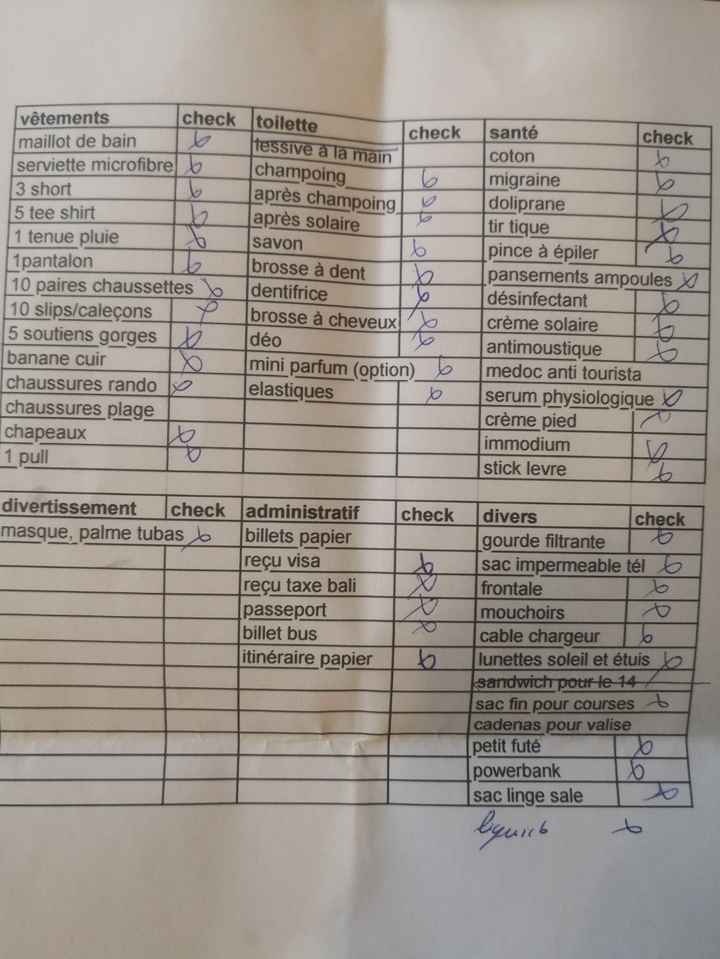 vêtements check
maillot de bain
serviette microfibre
3 short
5 tee shirt
1 tenue pluie
1pantalon
10 paires chaussettes
10 slips/caleçons
5 soutiens gorges
banane cuir
chaussures rando
chaussures plage
chapeaux
1 pull
toilette check
lessive à la main
champoing
après champoing
après solaire
savon
brosse à dent
dentifrice
brosse à cheveux
déo
mini parfum (option)
elastiques
santé check
coton
migraine
doliprane
tir tique
pince à épiler
pansements ampoules
désinfectant
crème solaire
antimoustique
medoc anti tourista
serum physiologique
crème pied
immodium
stick levre
divertissement check
masque, palme tubas
administratif check
billets papier
reçu visa
reçu taxe bali
passeport
billet bus
itinéraire papier
divers check
gourde filtrante
sac impermeable tél
frontale
mouchoirs
cable chargeur
lunettes soleil et étuis
sandwich pour le 14
sac fin pour courses
cadenas pour valise
petit futé
powerbank
sac linge sale